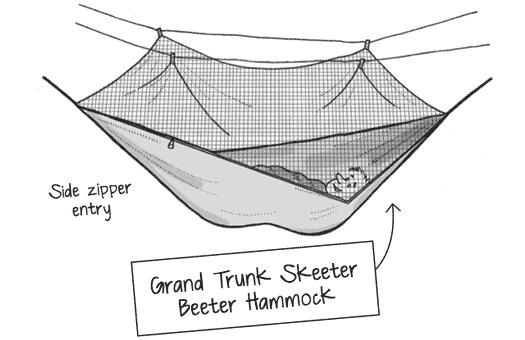 Side zipper
entry
Grand Trunk Skeeter
Beeter Hammock